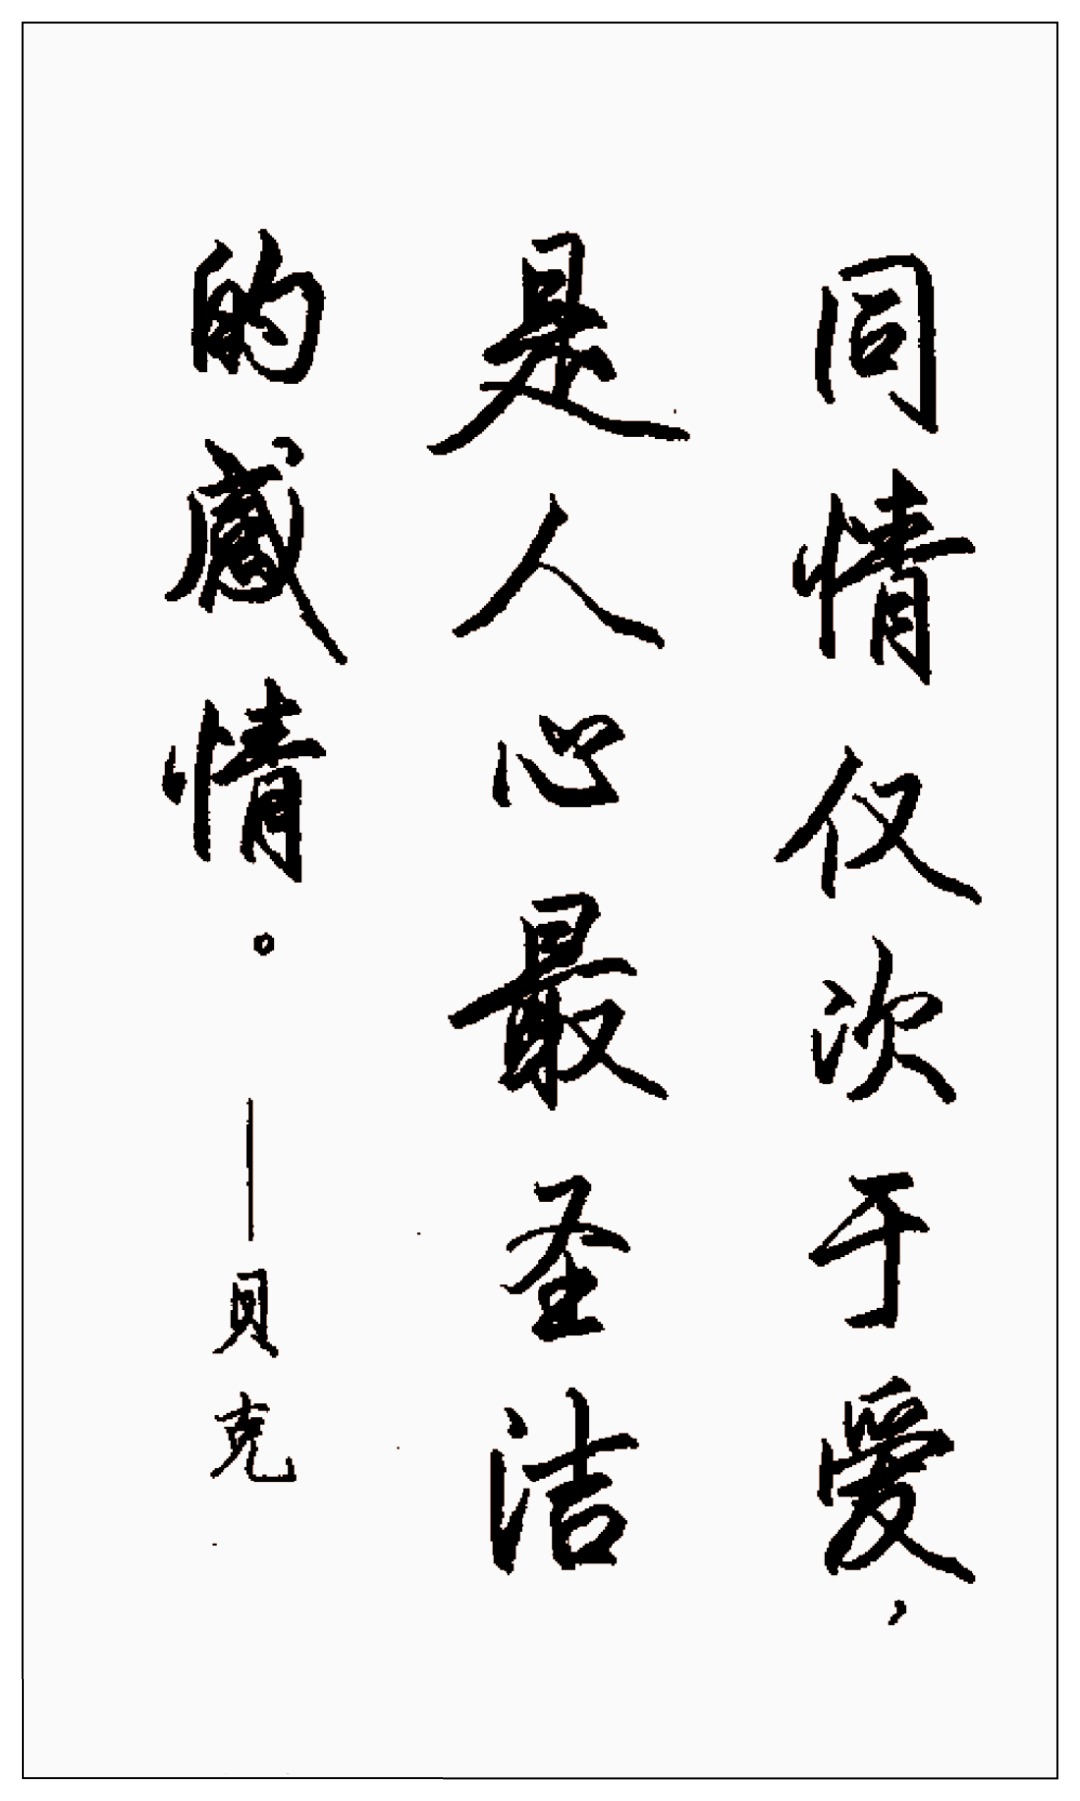 同情仅次于爱，
是人心最圣洁
的感情。——贝克